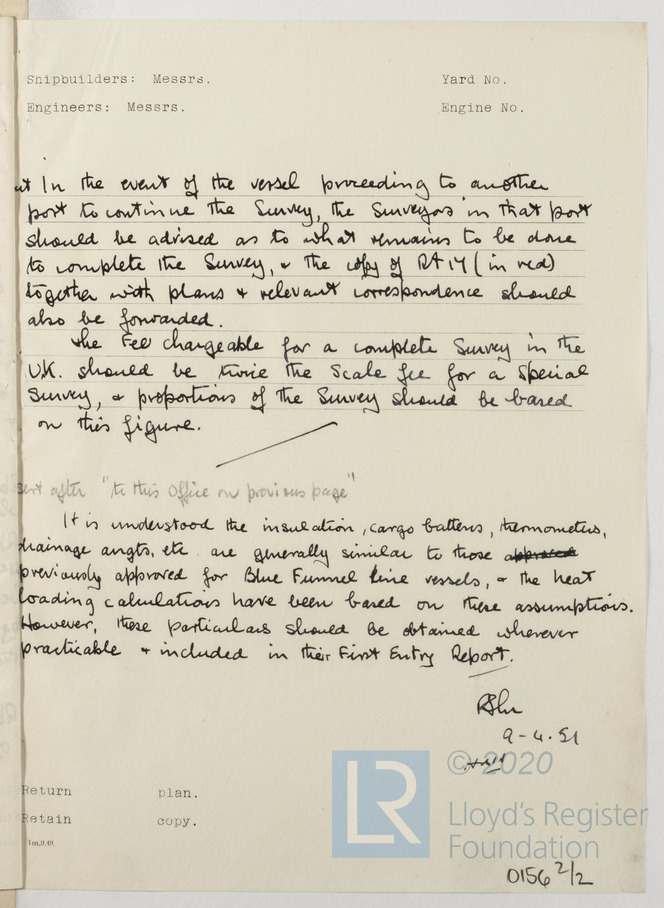 Shipbuilders: Messrs. Yard No.
Engineers: Messrs. Engine No.
In the event of the vessel proceeding to another
port to continue the Survey, the Surveyors in that port
should be advised as to what remains to be done
to complete the Survey, & the copy of Rpt 17 (in red)
together with plans & relevant correspondence should
also be forwarded.
The Fee chargeable for a complete Survey in the
U.K. should be twice the Scale fee for a Special
Survey, & proportions of the Survey should be based
on this figure.
sert after "to this Office on previous page"
It is understood the insulation, cargo battens, thermometers,
drainage angts, etc. are generally similar to those approved
previously approved for Blue Funnel Line vessels, & the heat
loading calculations have been based on these assumptions.
However, these particulars should be obtained wherever
practicable & included in their First Entry Report.
9-4.51
Return plan.
Retain copy.
1m,9,49.
LR
© 2020
Lloyd's Register
Foundation
0156 2/2